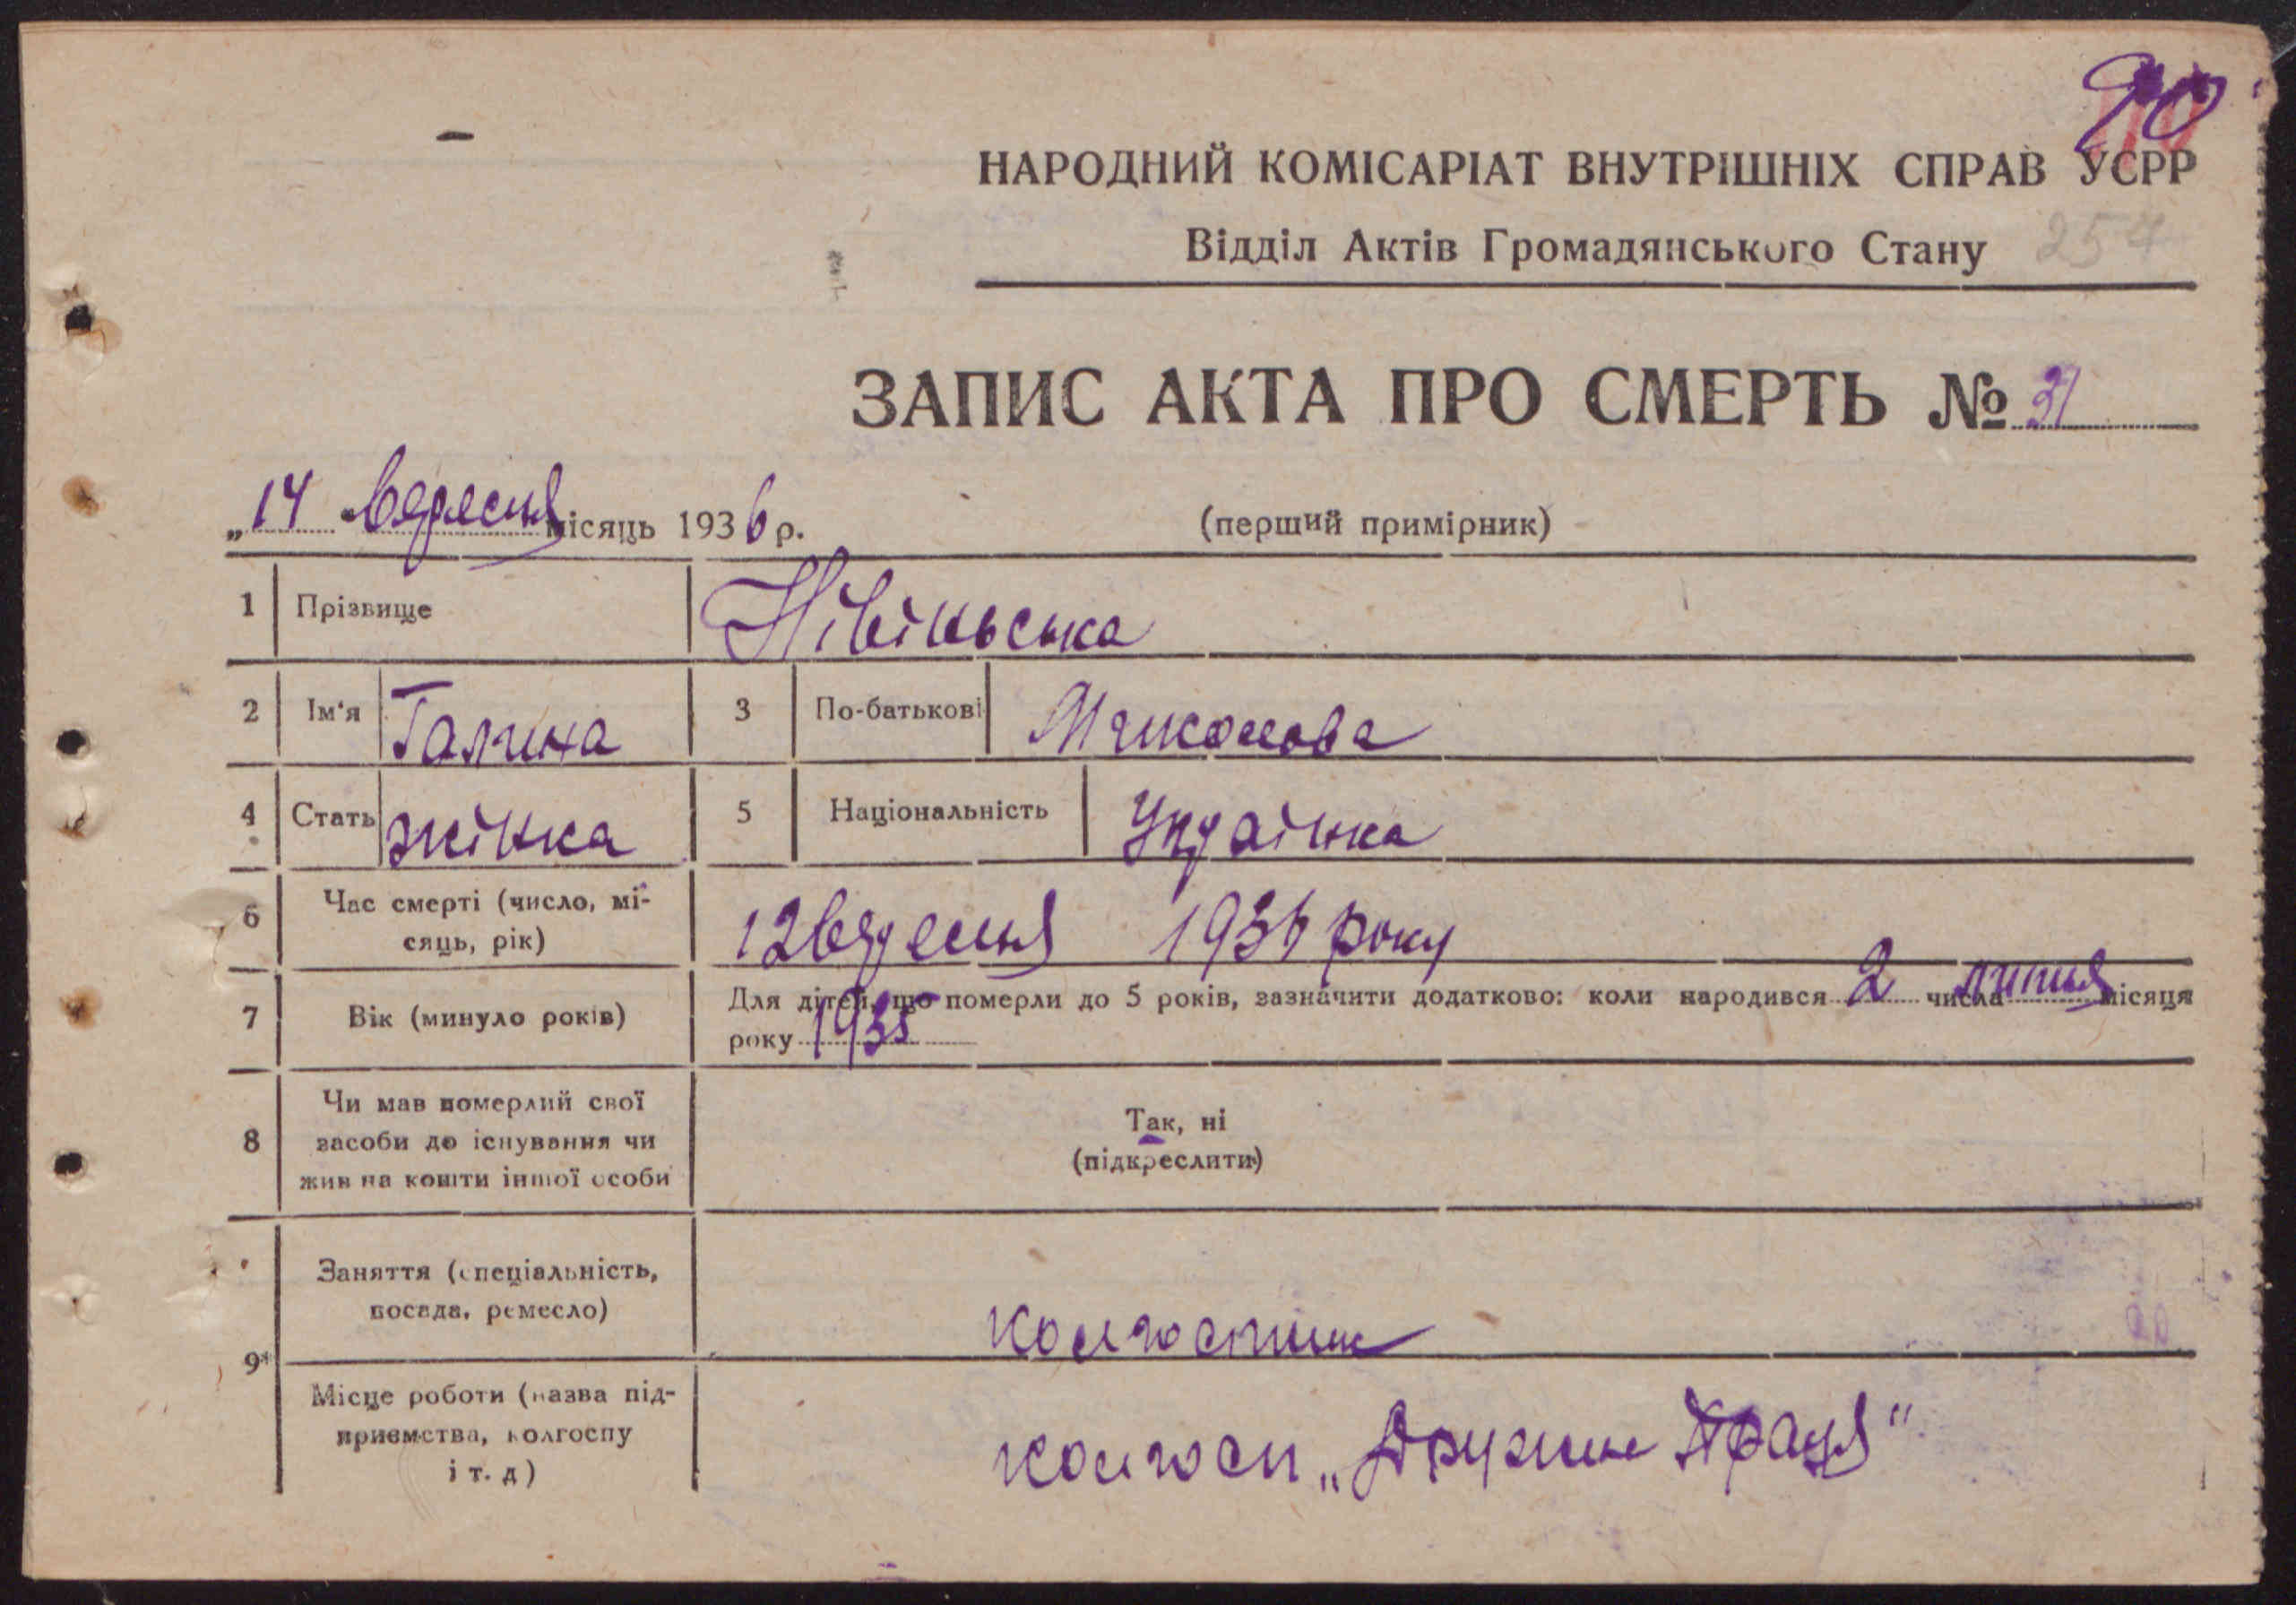 90
НАРОДНИЙ КОМІСАРІАТ ВНУТРІШНІХ СПРАВ УСРР
Відділ Актів Громадянського Стану 254
ЗАПИС АКТА ПРО СМЕРТЬ № 31
„14" вересня місяць 1936 р.
(перший примірник)
1 Прізвище Нівіньська
2 Ім'я Галина 3 По-батькові
4 Стать жінка 5 Національність Украінка
6 Час смерті (число, мі-
сяць, рік) 12 вересня 1936 року
7 Вік (минуло років) Для дітей, що померли до 5 років, зазначити додатково: коли народився 2 числа липня місяця
року 1935
8 Чи мав померлий свої
засоби до існування чи
жив на кошти іншої особи
Так, ні
(підкреслити)
9* Заняття (спеціальність,
посада, ремесло) колгоспник
Місце роботи (назва під-
приємства, колгоспу
і т. д) колгосп „Дружня Праця"